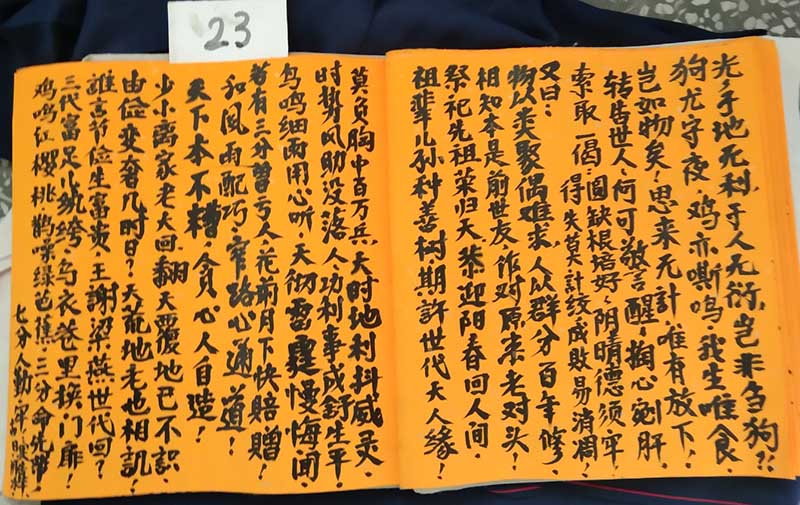 23
光,于地无利,于人无衍,岂非刍狗?!
狗尤守夜,鸡亦嘶鸣,我生唯食,
岂如物矣!思来无计,唯有放下!
转告世人,何可敬言醒,掏心剜肝
索取一偈:圆缺根培好,阴晴德须牢
得失莫计绞成败易消凋!
又曰:
物以类聚偶难求,人以群分百年修,
相知本是前世友,作对原来老对头!
祭祀先祖菜归天,恭迎阳春回人间,
祖辈儿孙利善树期许世代大人缘!
莫负胸中百万兵,天时地利抖威灵.
时势风助没落人,功利事成舒生平.
鸟鸣细雨用心听,天彻雷霆慢悔间
若有三分曾亏人,花前月下快赔赠!
和风雨配巧,窄路心通道!
天下本不糟,贪心人自造!
少小离家老大回,翻天覆地已不识.
由俭变奢几时日?天荒地老也相讥!
谁言节俭生富贵,王谢梁燕世代回?
三代富足儿纨绔,乌衣巷里换门扉!
鸡鸣红樱桃,鹊噪绿芭蕉,三分命先带
七分人勤牢